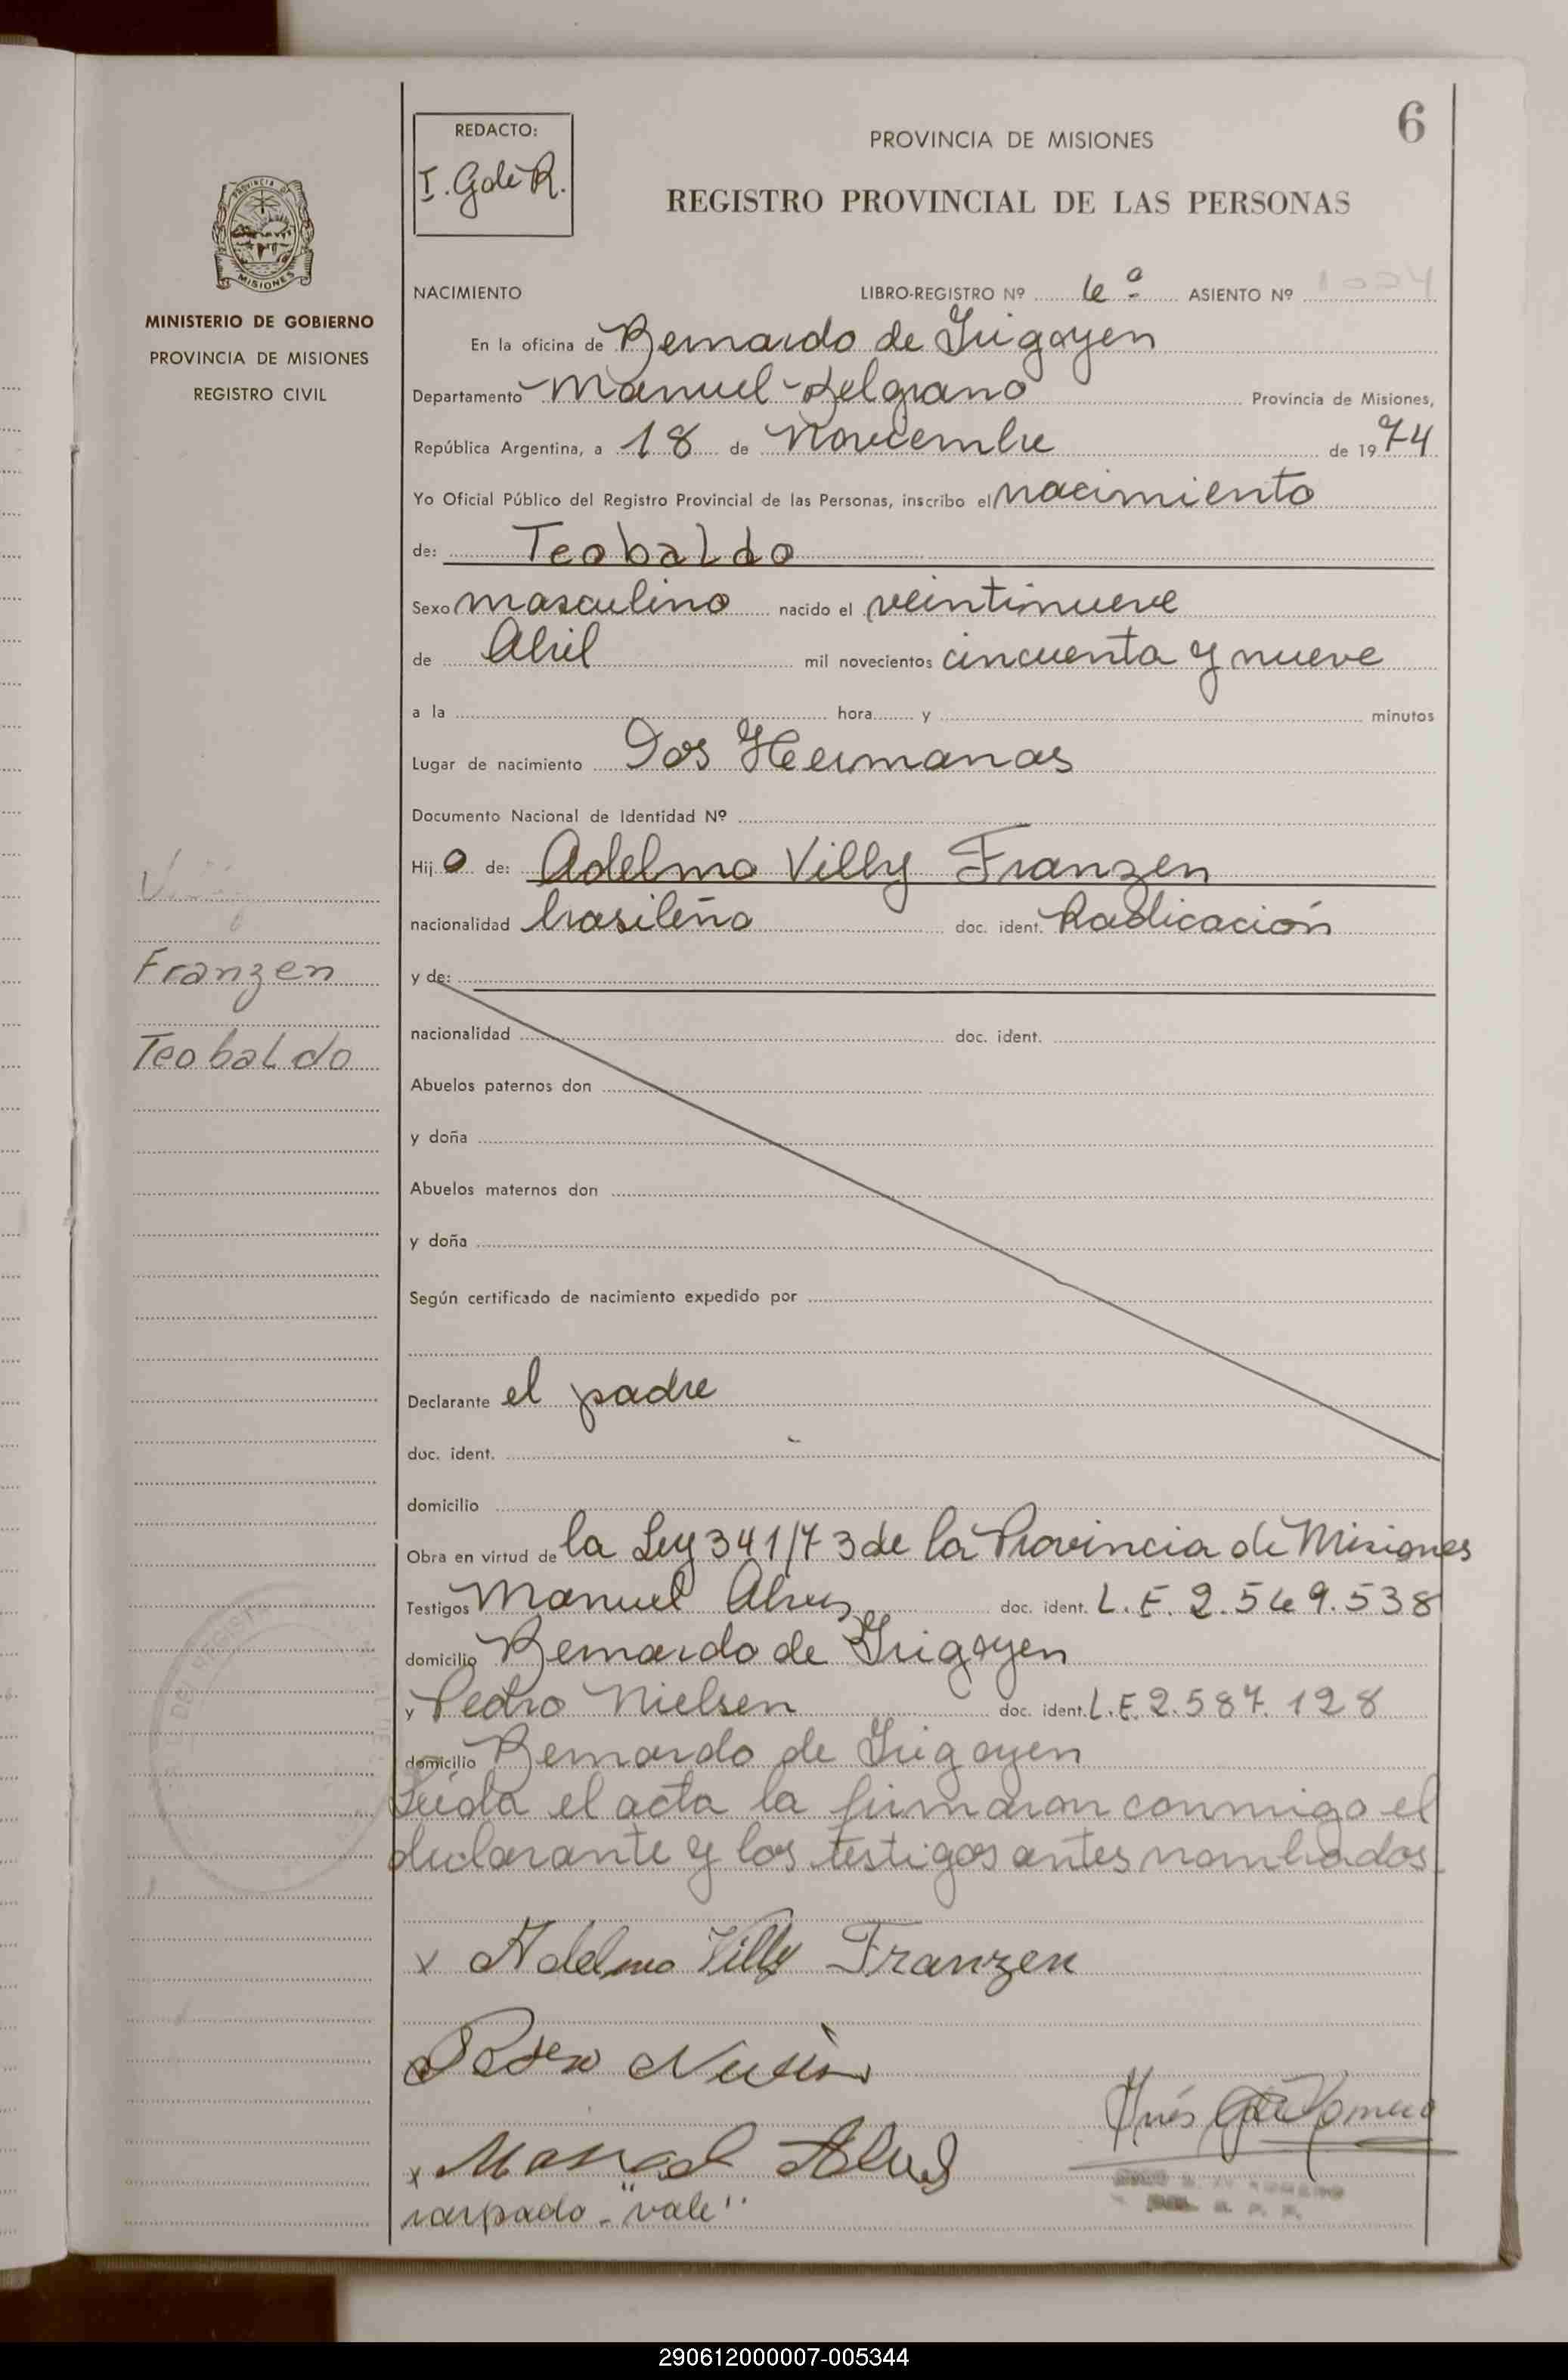 6
REDACTO:
I. G de R.
PROVINCIA DE MISIONES
REGISTRO PROVINCIAL DE LAS PERSONAS
PROVINCIA DE
MISIONES
MINISTERIO DE GOBIERNO
PROVINCIA DE MISIONES
REGISTRO CIVIL
NACIMIENTO LIBRO-REGISTRO Nº 6º ASIENTO Nº
En la oficina de Bernardo de Irigoyen
Departamento Manuel Belgrano Provincia de Misiones,
República Argentina, a 18 de Noviembre de 1974
Yo Oficial Público del Registro Provincial de las Personas, inscribo el nacimiento
de: Teobaldo
Sexo masculino nacido el veintinueve
de Abril mil novecientos cincuenta y nueve
a la hora y minutos
Lugar de nacimiento Dos Hermanas
Documento Nacional de Identidad Nº
Hijo de: Adelmo Villy Franzen
nacionalidad brasileño doc. ident. Radicación
Franzen
Teobaldo
y de:
nacionalidad doc. ident.
Abuelos paternos don
y doña
Abuelos maternos don
y doña
Según certificado de nacimiento expedido por
Declarante el padre
doc. ident.
domicilio
Obra en virtud de la Ley 341/73 de la Provincia de Misiones
Testigos Manuel Alves doc. ident. L.E. 2.569.538
domicilio Bernardo de Irigoyen
y Pedro Nielsen doc. ident. L.E. 2.587.128
domicilio Bernardo de Irigoyen
Leída el acta la firmaron conmigo el
declarante y los testigos antes nombrados.
x Adelmo Villy Franzen
Pedro Nielsen
Inés G de Romero
x Manuel Alves
raspado - "vale".
290612000007-005344